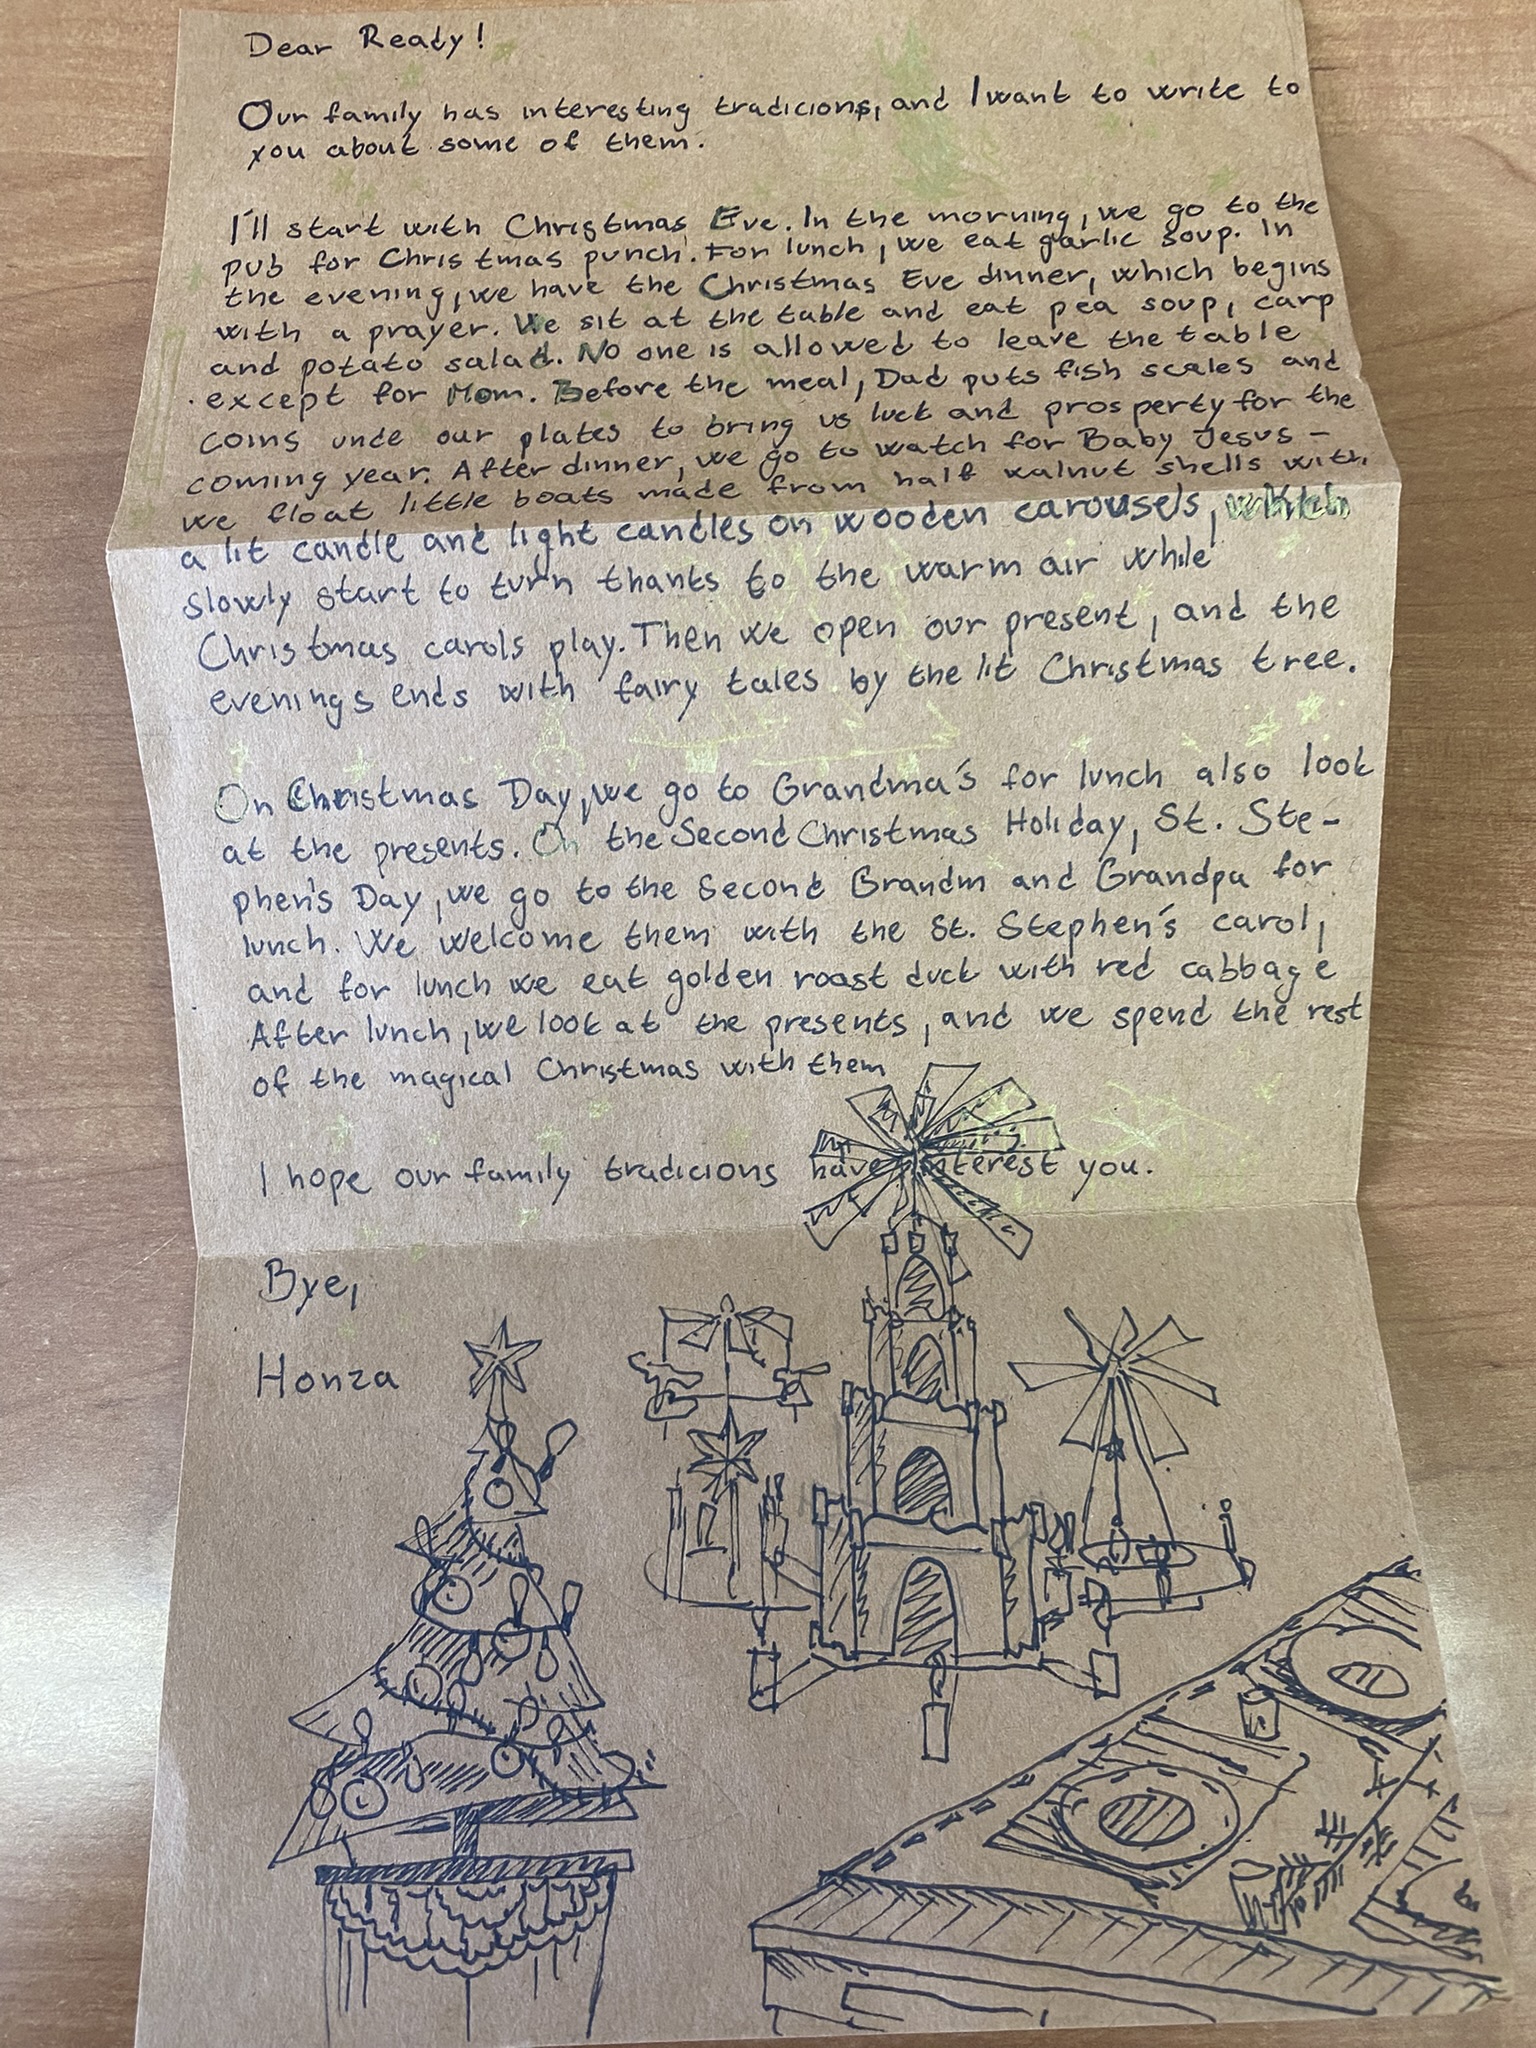 Dear Ready!
Our family has interesting tradicions, and I want to write to
you about some of them.
I'll start with Christmas Eve. In the morning, we go to the
pub for Christmas punch. For lunch, we eat garlic soup. In
the evening, we have the Christmas Eve dinner, which begins
with a prayer. We sit at the table and eat pea soup, carp
and potato salad. No one is allowed to leave the table
except for Mom. Before the meal, Dad puts fish scales and
coins unde our plates to bring us luck and prosperty for the
coming year. After dinner, we go to watch for Baby Jesus -
we float little boats made from half walnut shells with
a lit candle and light candles on wooden carousels, which
slowly start to turn thanks to the warm air while
Christmas carols play. Then we open our present, and the
evenings ends with fairy tales by the lit Christmas tree.
On Christmas Day, we go to Grandma's for lunch also look
at the presents. On the Second Christmas Holiday, St. Ste-
phen's Day, we go to the second Grandm and Grandpa for
lunch. We welcome them with the St. Stephen's carol,
and for lunch we eat golden roast duck with red cabbage
After lunch, we look at the presents, and we spend the rest
of the magical Christmas with them
I hope our family tradicions have interest you.
Bye,
Honza